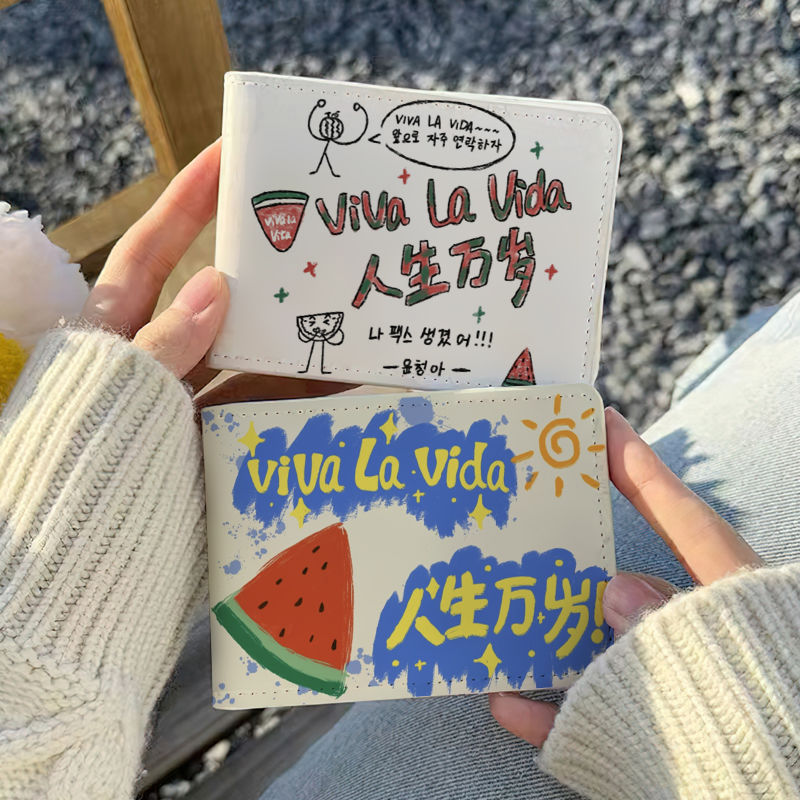 VIVA LA VIDA~~~
앞으로 자주 연락하자
ViVa La Vida
ViVa La
Vita
人生万岁
나 팩스 생겼어!!!
—윤청아—
ViVa La Vida
人生万岁!